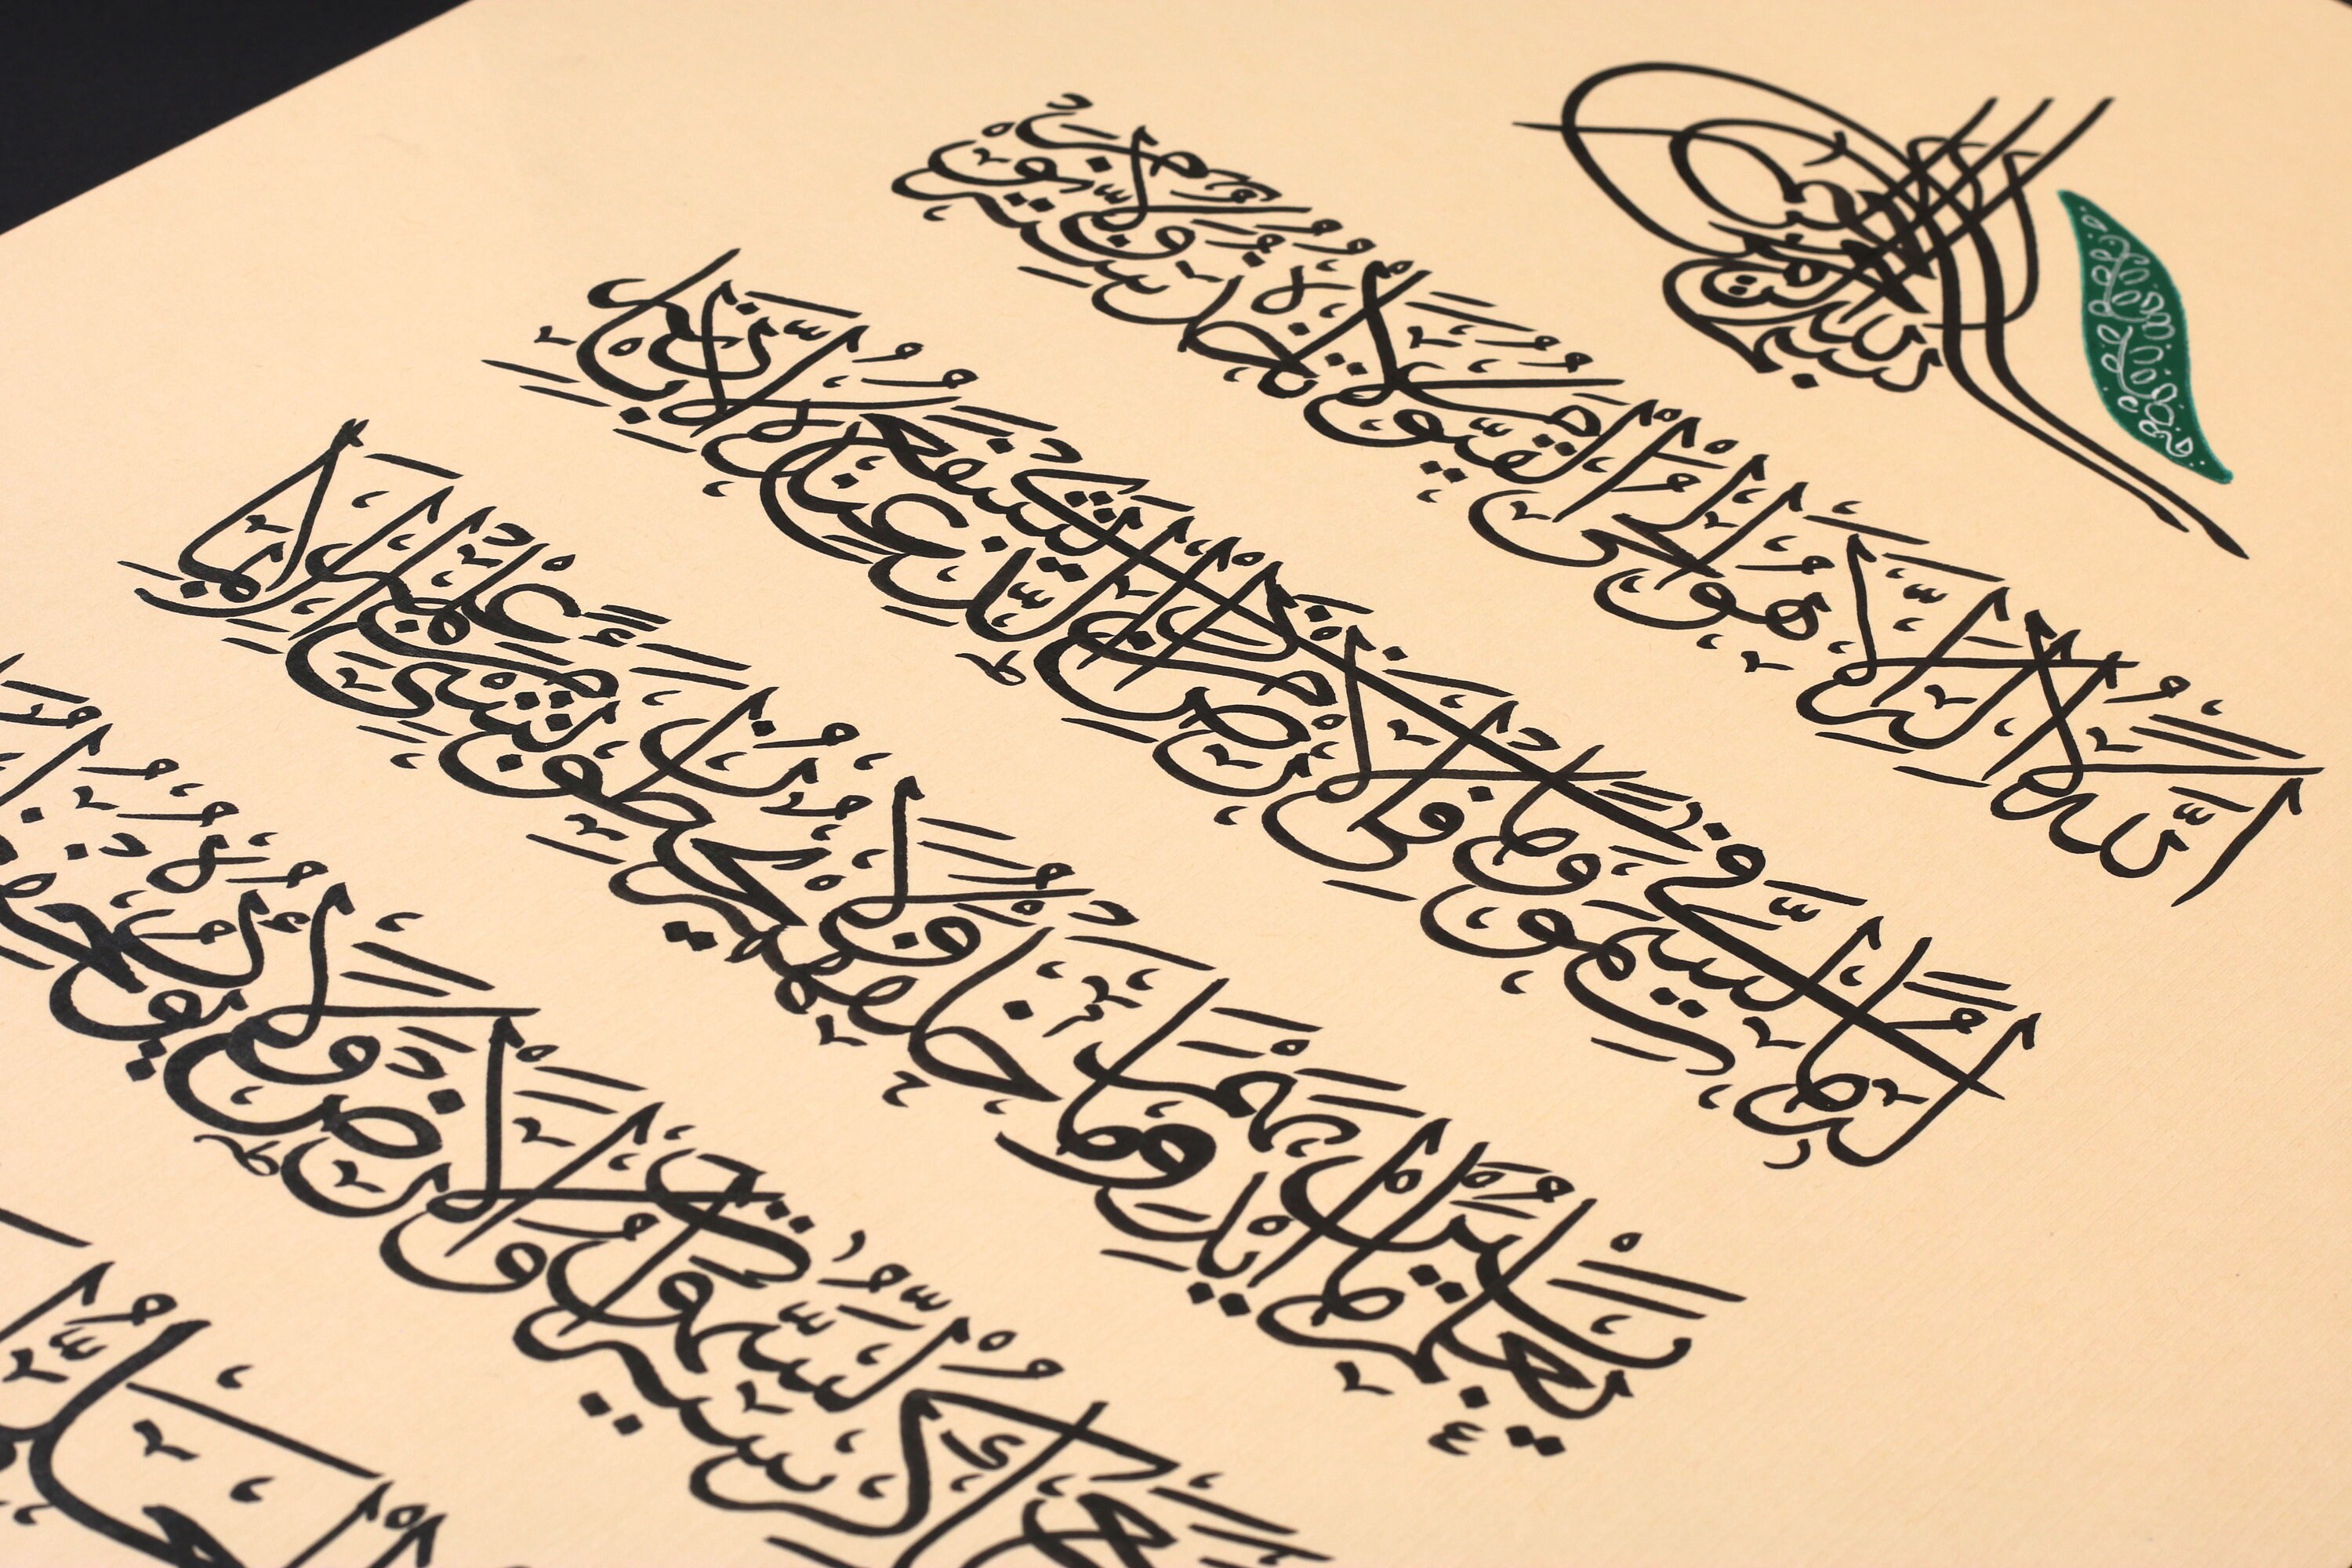 بسم الله الرحمن الرحيم
اَللّٰهُ لَا اِلٰهَ اِلَّا هُوَ الْحَيُّ الْقَيُّومُ لَا تَأْخُذُهُ سِنَةٌ وَلَا نَوْمٌ
لَهُ مَا فِي السَّمٰوَاتِ وَمَا فِي الْاَرْضِ مَنْ ذَا الَّذِي يَشْفَعُ عِنْدَهُ اِلَّا بِاِذْنِهِ
يَعْلَمُ مَا بَيْنَ اَيْدِيهِمْ وَمَا خَلْفَهُمْ وَلَا يُحِيطُونَ بِشَيْءٍ مِنْ عِلْمِهِ اِلَّا بِمَا
كُرْسِيُّهُ السَّمٰوَاتِ وَالْاَرْضَ وَلَا يَؤُدُهُ